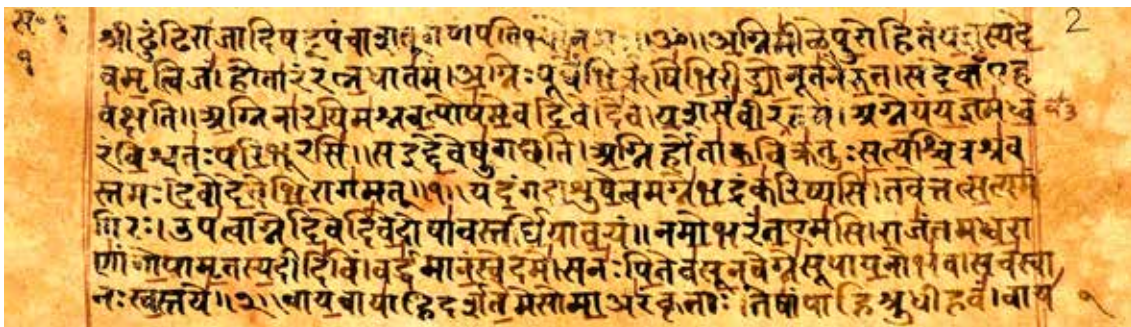 2
श्रीढुंढिराजादिषट्पंचाशत् गणपतिभ्यो नमः॥ॐ॥अग्निमीळेपुरोहितंयज्ञस्यदे
१
वमृत्विजं।होतारंरत्नधातमं।अग्निःपूर्वेभिर्ऋषिभिरीड्योनूतनैरुत।सदेवाँएह
वक्षति॥अग्निनारयिमश्नवत्पोषमेवदिवेदिवे।यशसंवीरवत्तमं।अग्नेयंयज्ञमध्व
रंविश्वतःपरिभूरसि॥सइद्देवेषुगच्छति।अग्निर्होताकविक्रतुःसत्यश्चित्रश्रव
स्तमः।देवोदेवेभिरागमत्॥१॥यदंगदाशुषेत्वमग्नेभद्रंकरिष्यसि।तवेत्तत्सत्यमं
गिरः।उपत्वाग्नेदिवेदिवेदोषावस्तर्धियावयं॥नमोभरंतएमसि।राजंतमध्वरा
णांगोपामृतस्यदीदिविं।वर्द्धमानंस्वेदमे।सनःपितेवसूनवेग्नेसूपायनोभव।सचस्वा
नःस्वस्तये॥२॥वायवायाहिदर्शतेमेसोमाअरंकृताः।तेषांपाहिश्रुधीहवं।वाय १